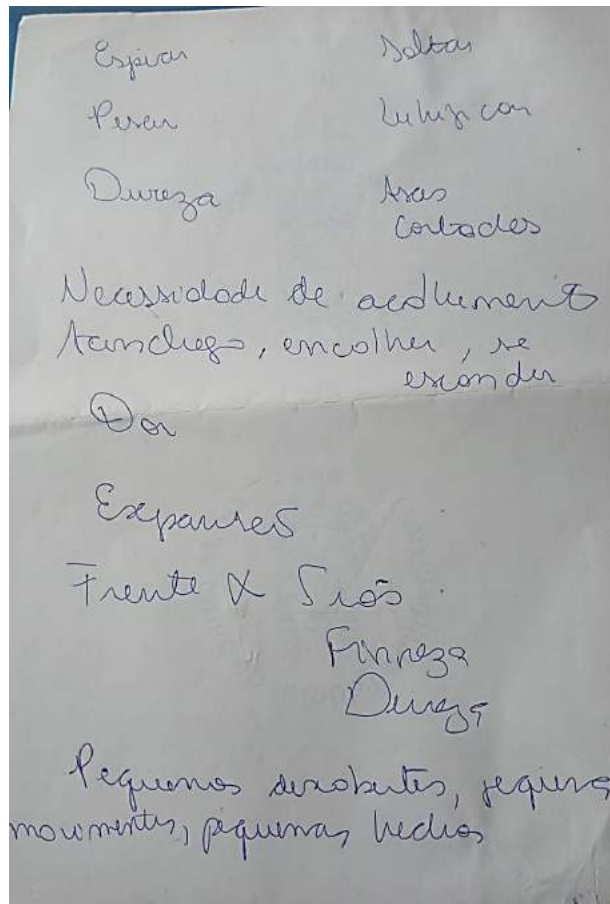 Soltar
Pesar
Dureza Asas
Cortadas
Necessidade de acolhimento
Aconchego, encolher, se
esconder
Dor
Expansão
Frente X Trás
Firmeza
Dureza
Pequenas descobertas, pequenos
movimentos, pequenas